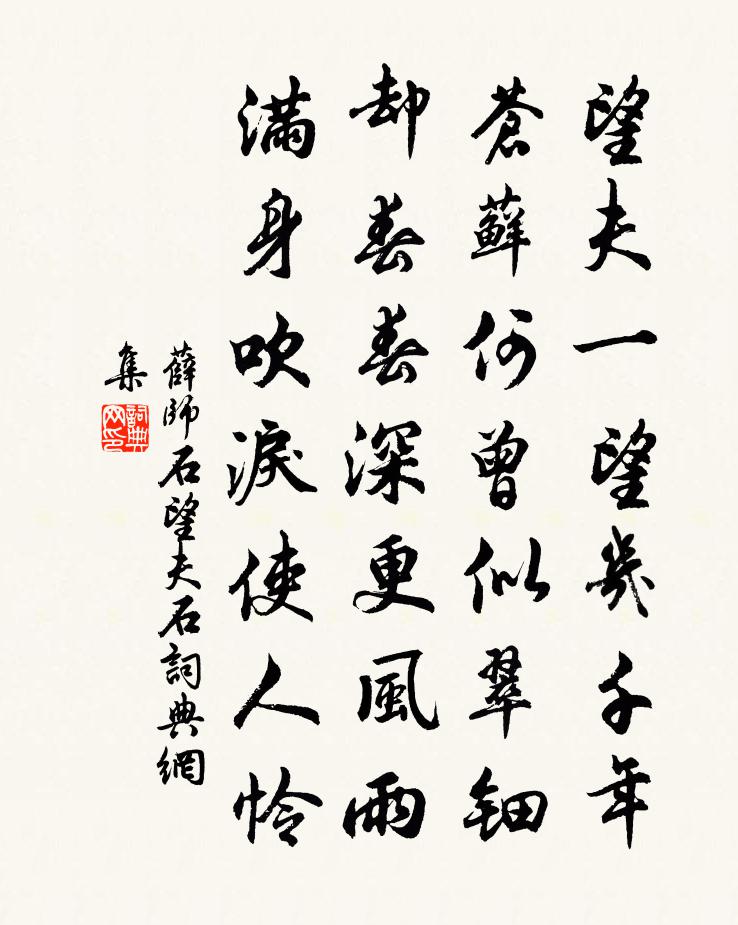 望夫一望幾千年
蒼蘚何曾似翠鈿
却春春深更風雨
滿身吹淚使人怜
薛師石望夫石詞典網
集
詞典
网印